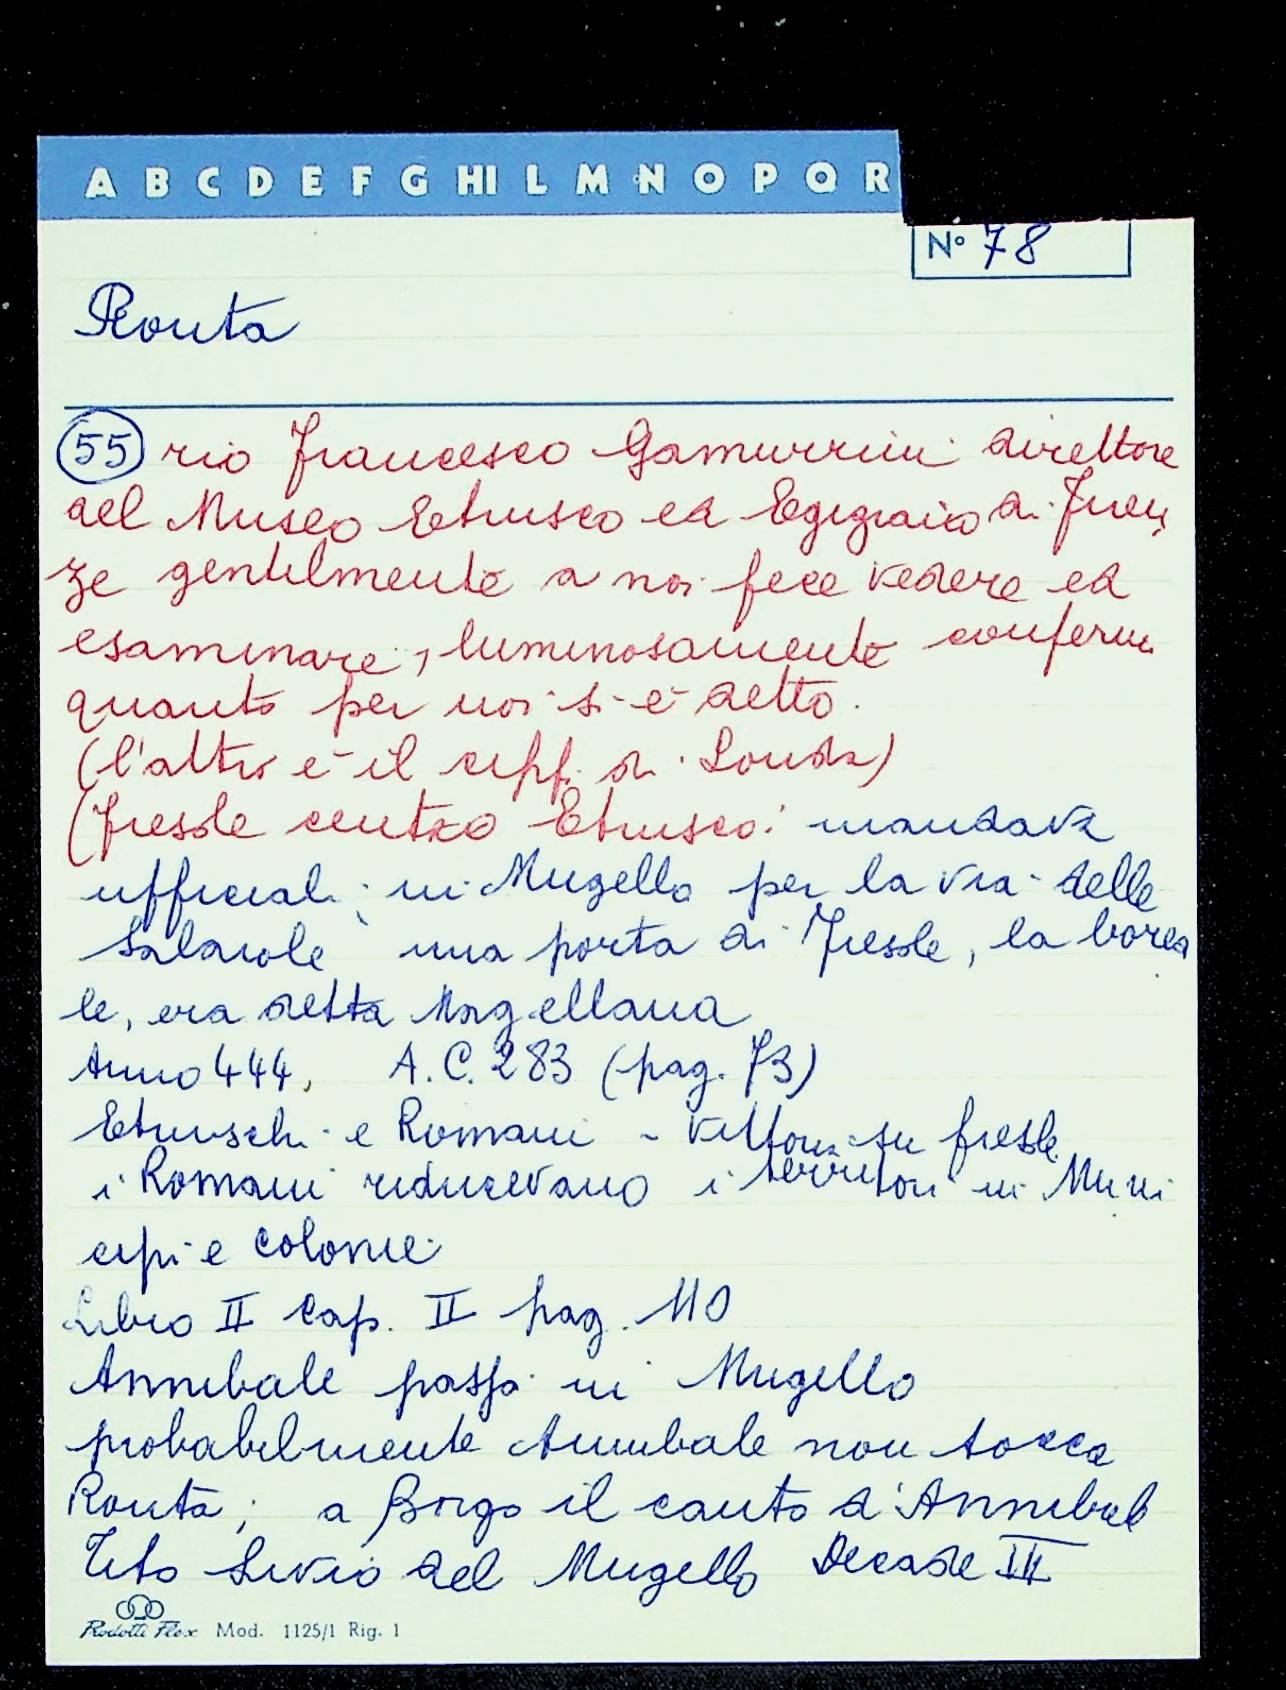 A B C D E F G HI L M N O P Q R
N° 78
Ronta
55 rio Francesco Gamurrini direttore
del Museo Etrusco ed Egiziaco di Firen
ze gentilmente a noi fece vedere ed
esaminare, luminosamente conferm
quanto per noi si è detto.
(l'altro è il cipp. di Londa)
(Fiesole centro Etrusco: mandava
ufficiali in Mugello per la via delle
Salaiole una porta di Fiesole, la borea
le, era detta Mugellana
Anno 444, A.C. 283 (pag. 73)
Etruschi e Romani - Vittoria su Fiesole
i Romani riducevano i territori in Muni
cipi e colonie
Libro II Cap. II pag. 110
Annibale passa in Mugello
probabilmente Annibale non tocca
Ronta; a Borgo il canto d'Annibale
Tito Livio del Mugello Decade III
Rodotti Flex Mod. 1125/1 Rig. 1